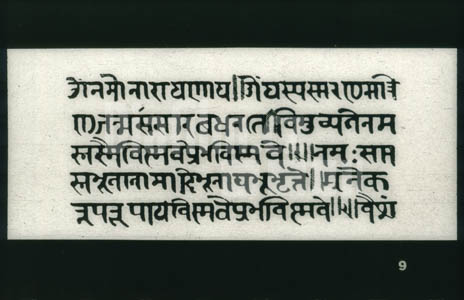 ॐनमोनारायणाय॥ॐयस्यस्मरणमात्रे
णजन्मसंसारबंधनात्विमुच्यतेनम
स्तस्मैविष्णवेप्रभविष्णवे॥१॥नमःसम
स्तभूतानामादिभूतायभूभृते॥अनेक
रूपरूपायविष्णवेप्रभविष्णवे॥२॥वैशं
9